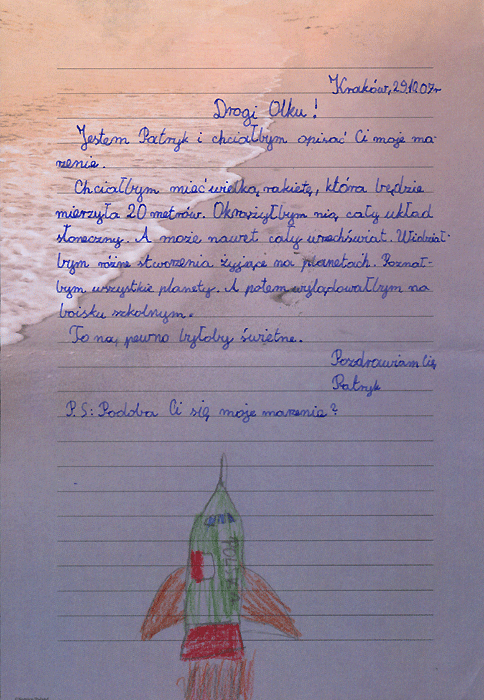 Kraków, 29.10.07r
Drogi Olku!
Jestem Patryk i chciałbym opisać Ci moje ma-
rzenie.
Chciałbym mieć wielką rakietę, która będzie
mierzyła 20 metrów. Okrążyłbym nią cały układ
słoneczny. A może nawet cały wszechświat. Widział-
bym różne stworzenia żyjące na planetach. Poznał-
bym wszystkie planety. A potem wylądowałbym na
boisku szkolnym.
To na pewno byłoby świetne.
Pozdrawiam Cię,
Patryk
P.S: Podoba Ci się moje marzenie?
POLSKA